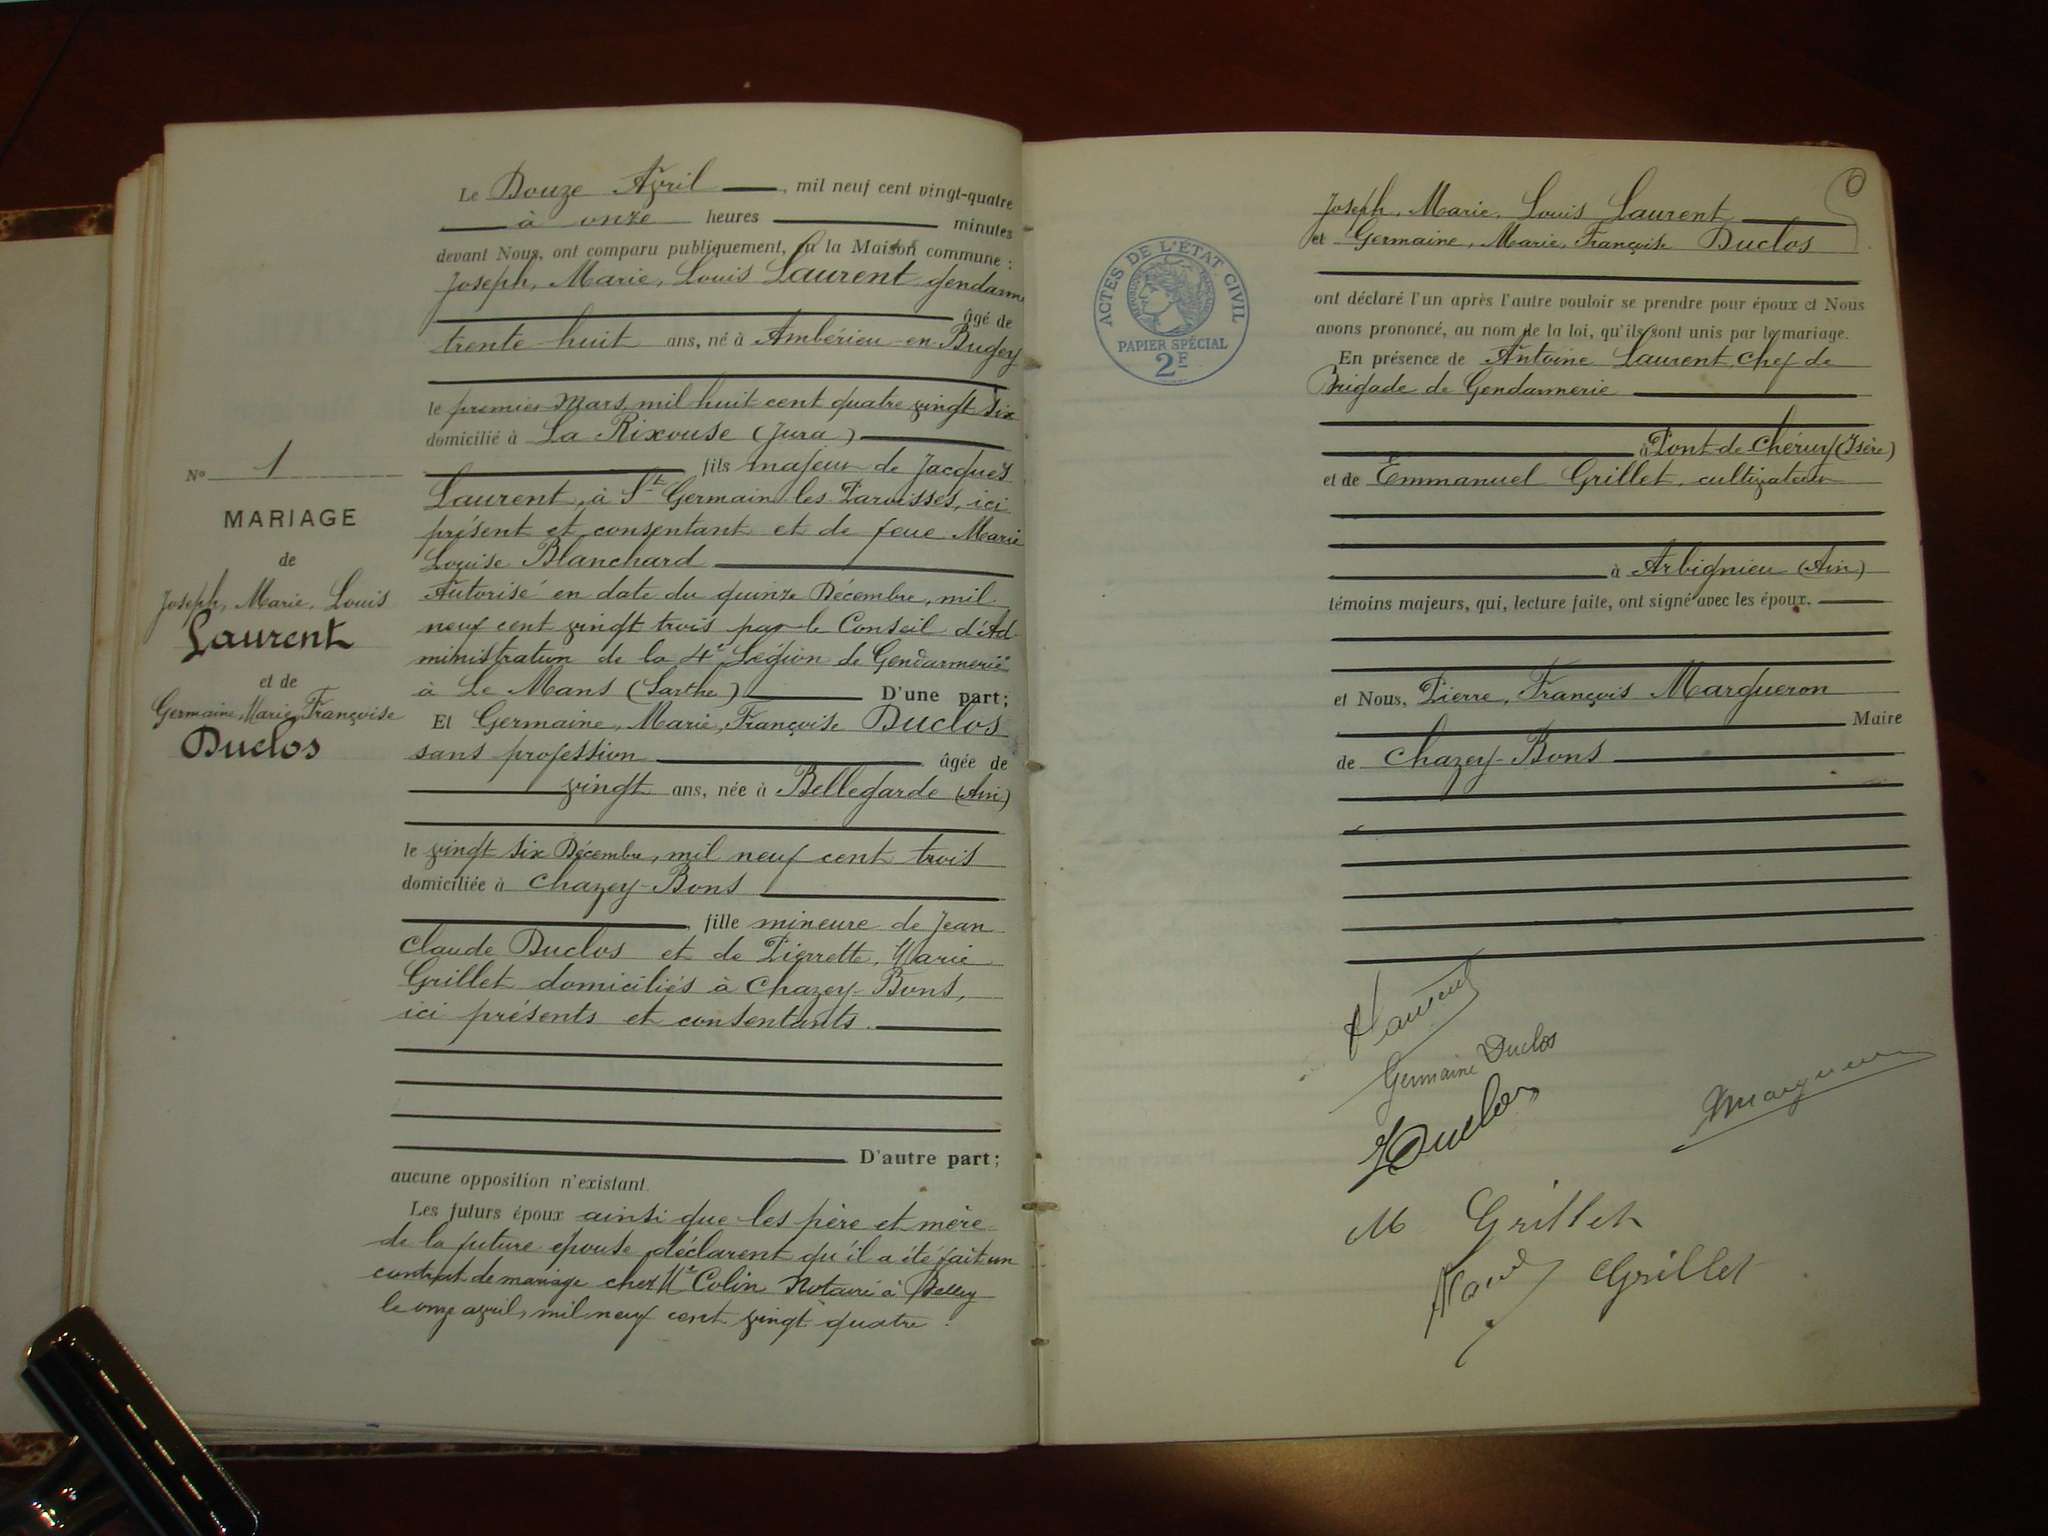 Le Douze Avril, mil neuf cent vingt-quatre
à onze heures minutes
devant Nous, ont comparu publiquement, en la Maison commune :
Joseph, Marie, Louis Laurent gendarme
âgé de
trente-huit ans, né à Ambérieu-en-Bugey
le premier Mars, mil huit cent quatre vingt six
domicilié à La Rixouse (Jura)
fils majeur de Jacques
Laurent, à St Germain les Paroisses, ici
présent et consentant et de feue Marie
Louise Blanchard
Autorisé en date du quinze Décembre, mil
neuf cent vingt trois par le Conseil d'Ad-
ministration de la 4e Légion de Gendarmerie
à Le Mans (Sarthe) D'une part;
Et Germaine, Marie, Françoise Duclos
sans profession âgée de
vingt ans, née à Bellegarde (Ain)
le vingt six Décembre, mil neuf cent trois
domiciliée à Chazey-Bons
fille mineure de Jean
Claude Duclos et de Pierrette, Marie
Grillet domiciliés à Chazey-Bons,
ici présents et consentants.
D'autre part;
aucune opposition n'existant.
Les futurs époux ainsi que les père et mère
de la future épouse déclarent qu'il a été fait un
contrat de mariage chez Me Colin Notaire à Belley
le onze avril, mil neuf cent vingt quatre.
No 1
MARIAGE
de
Joseph, Marie, Louis
Laurent
et de
Germaine, Marie, Françoise
Duclos
ACTES DE L'ÉTAT CIVIL
PAPIER SPÉCIAL
2F
Joseph, Marie, Louis Laurent
et Germaine, Marie, Françoise Duclos
ont déclaré l'un après l'autre vouloir se prendre pour époux et Nous
avons prononcé, au nom de la loi, qu'ils sont unis par le mariage.
En présence de Antoine Laurent, Chef de
Brigade de Gendarmerie
à Pont-de-Chéruy (Isère)
et de Emmanuel Grillet, cultivateur
à Arbignieu (Ain)
témoins majeurs, qui, lecture faite, ont signé avec les époux.
et Nous, Pierre, François Margueron
Maire
de Chazey-Bons
Laurent
Germaine Duclos
Duclos
Margueron
M Grillet
Grillet